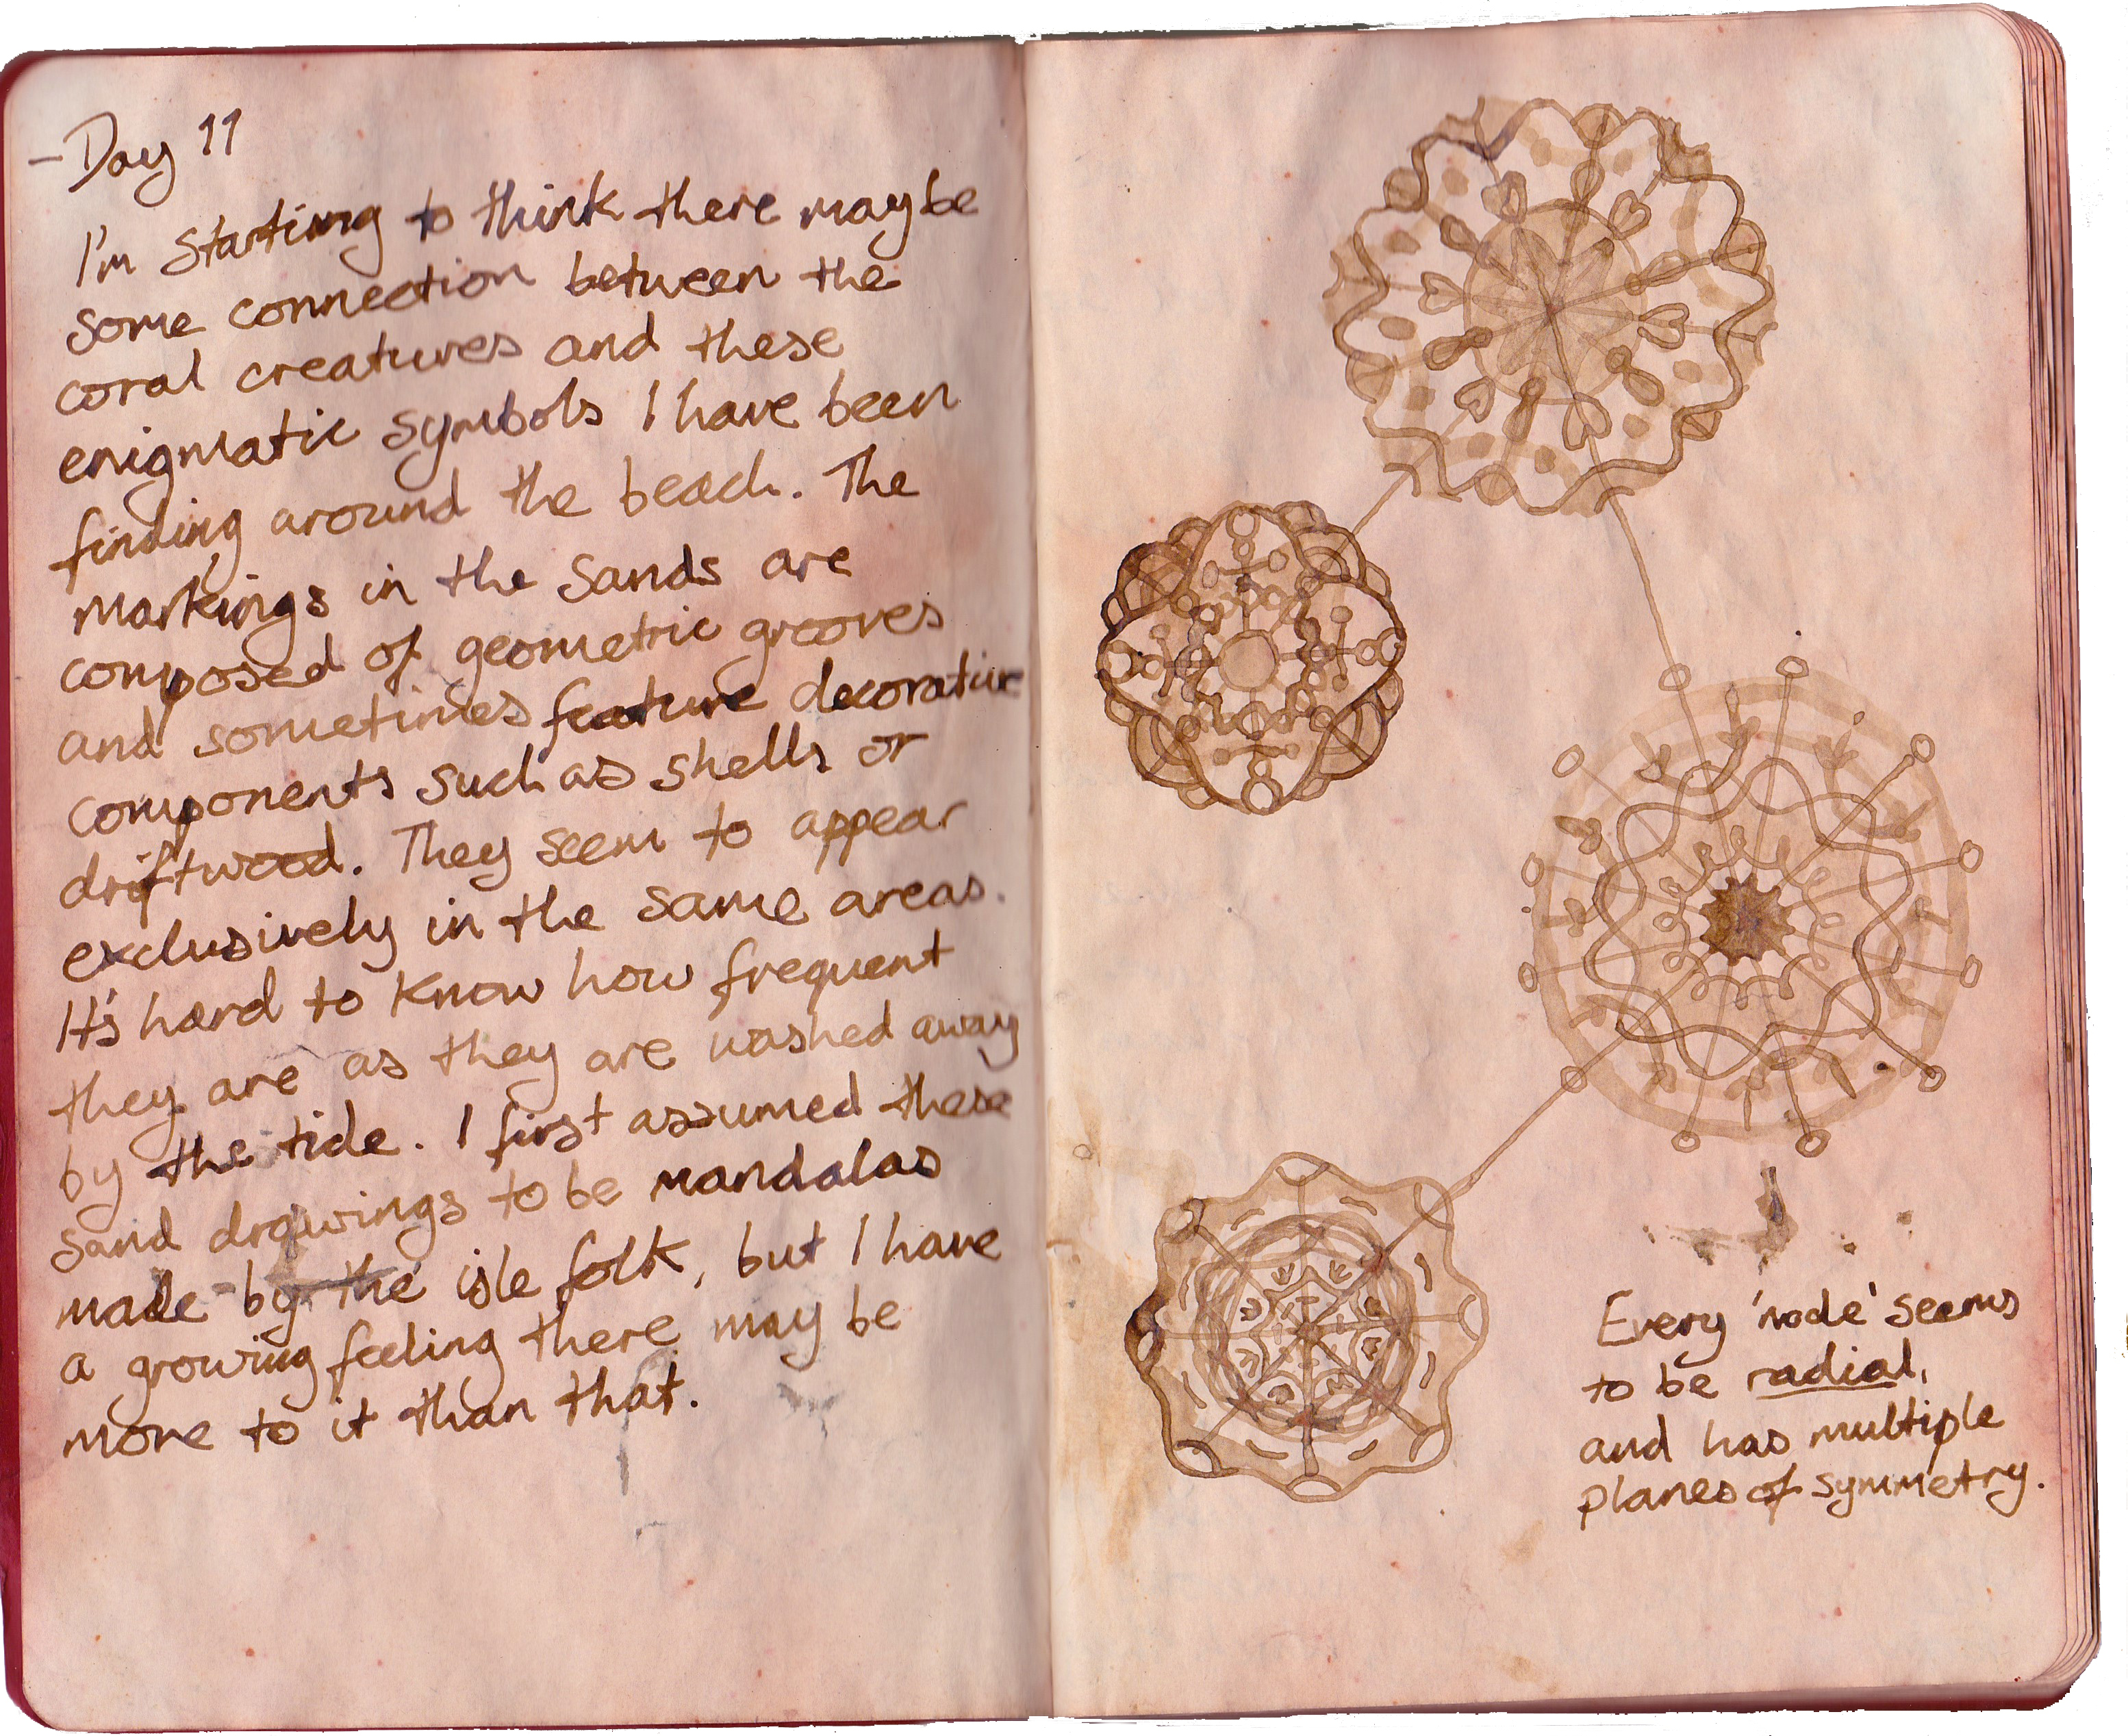 -Day 11
I'm starting to think there may be
some connection between the
coral creatures and these
enigmatic symbols I have been
finding around the beach. The
markings in the sands are
composed of geometric grooves
and sometimes feature decorative
components such as shells or
driftwood. They seem to appear
exclusively in the same areas.
It's hard to know how frequent
they are as they are washed away
by the tide. I first assumed these
sand drawings to be mandalas
made by the isle folk, but I have
a growing feeling there may be
more to it than that.
Every 'node' seems
to be radial,
and has multiple
planes of symmetry.